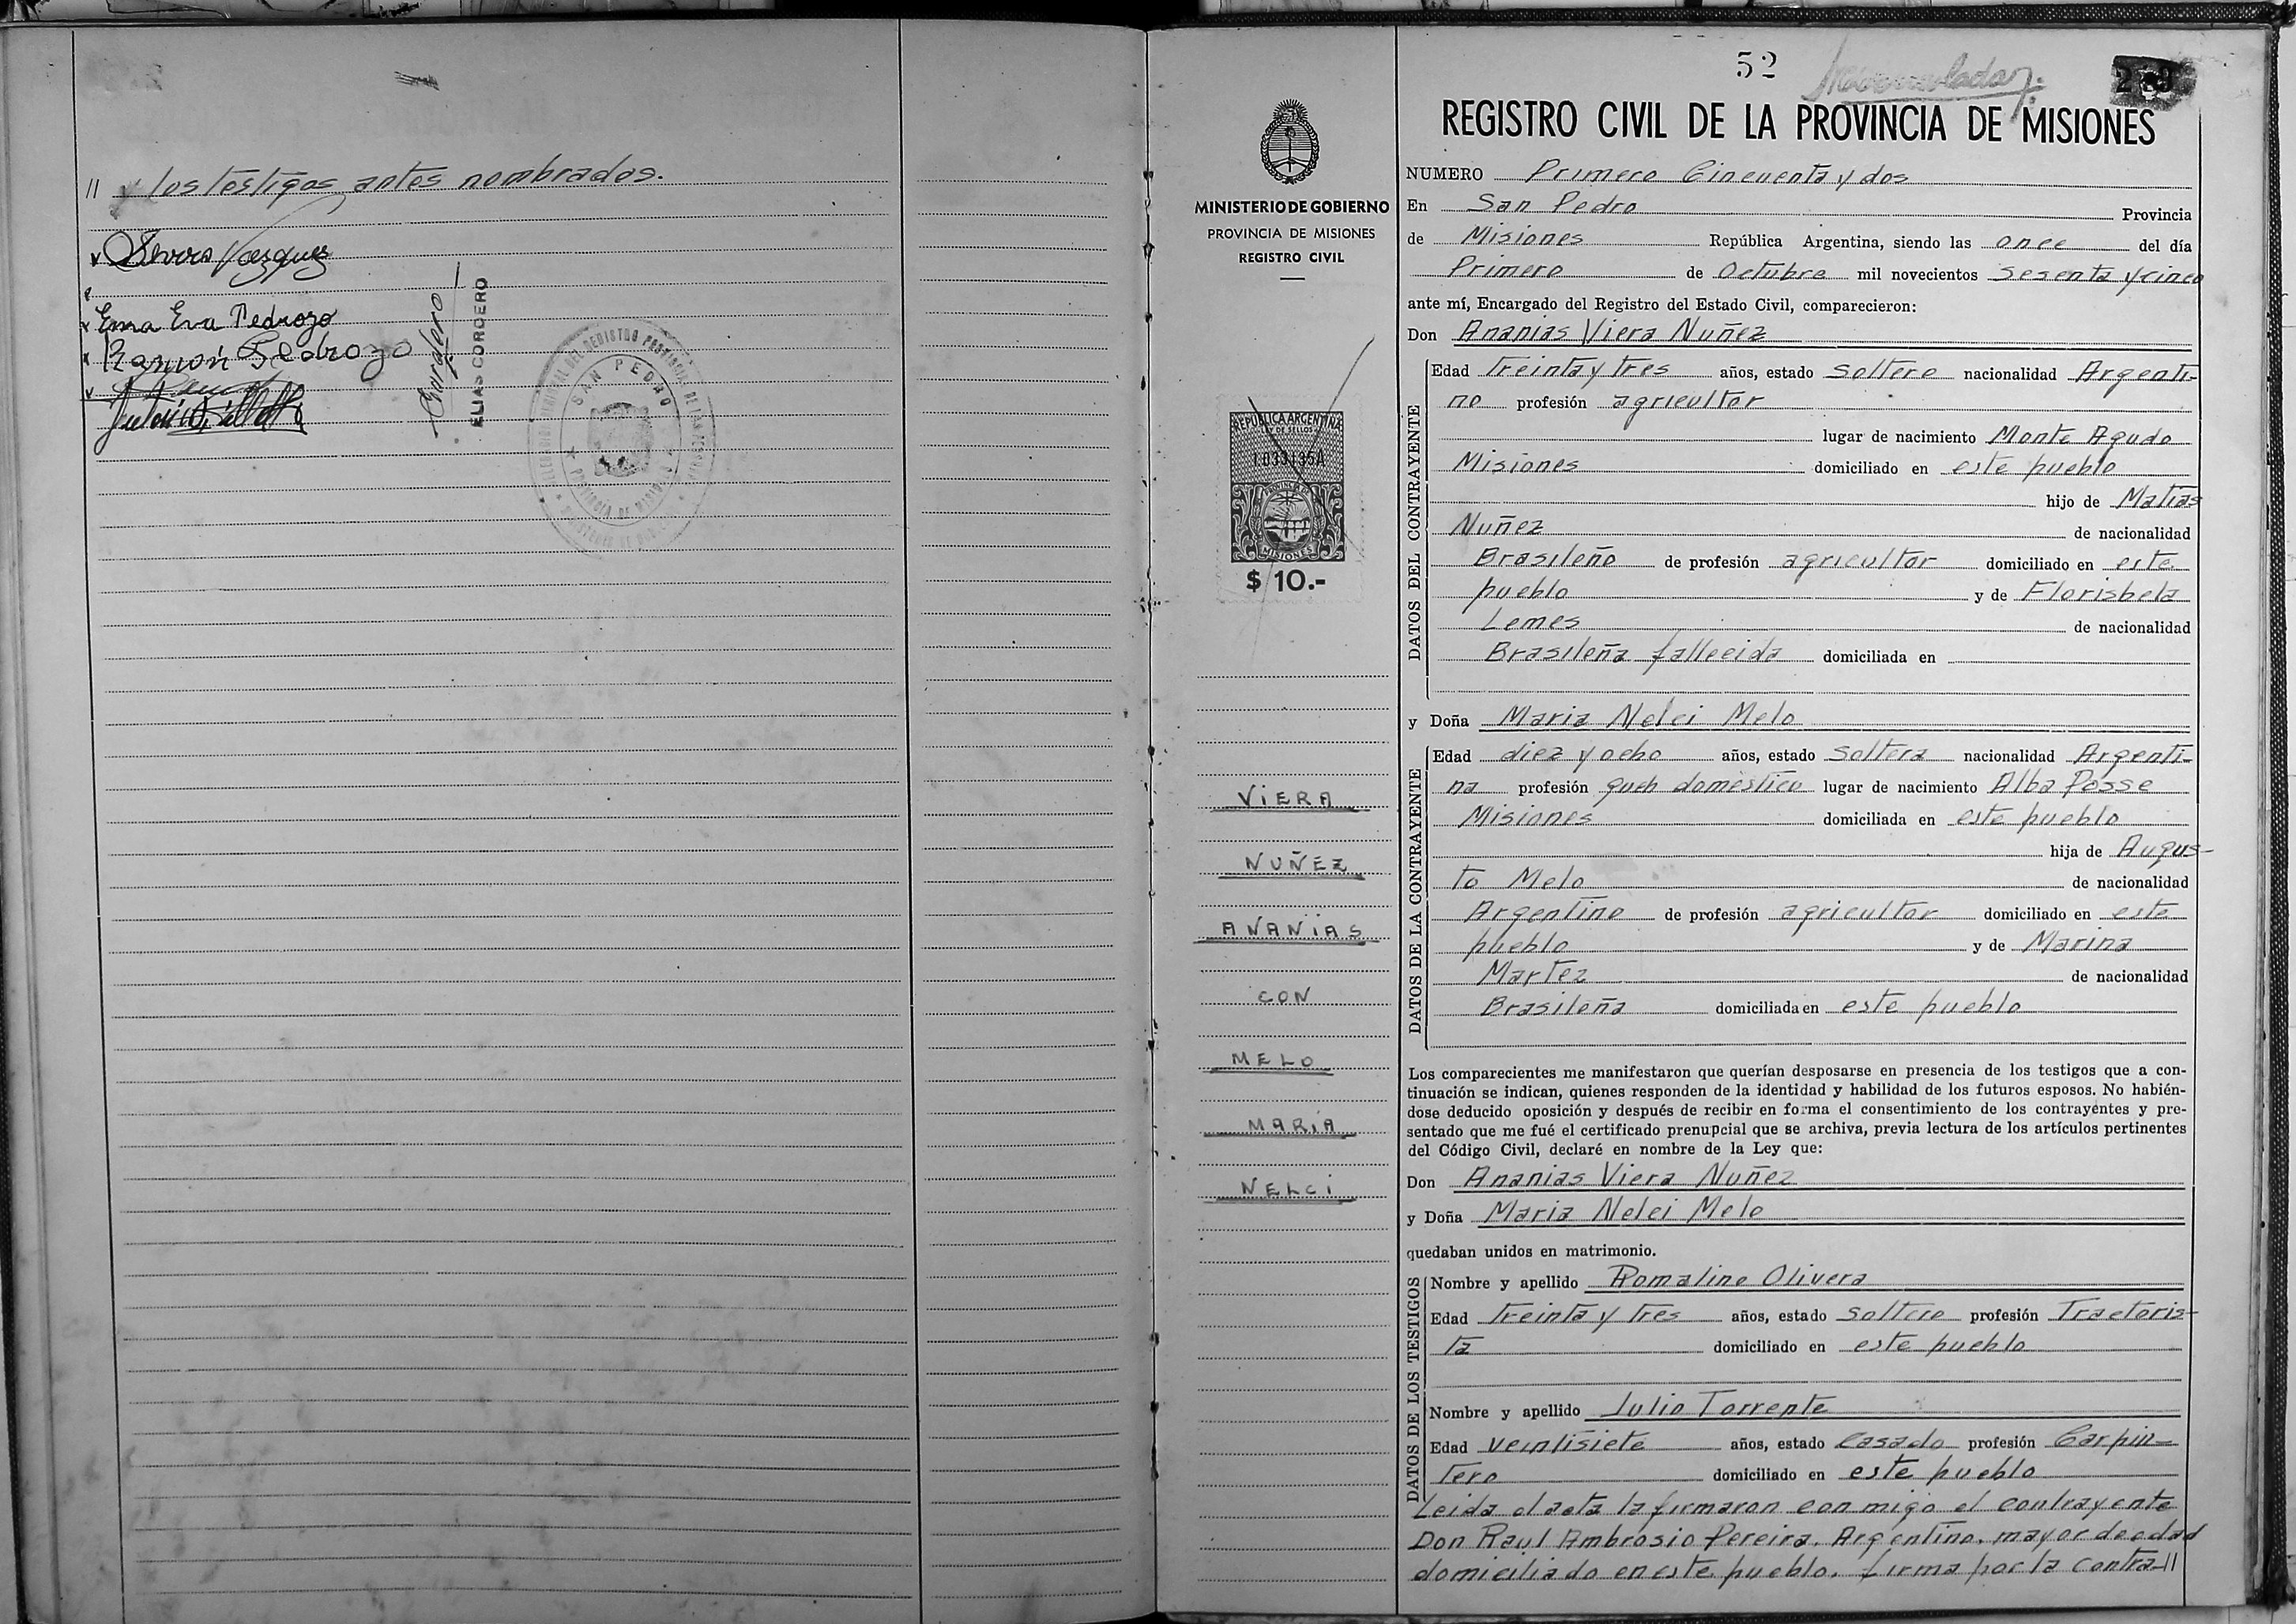 // y los testigos antes nombrados.
Severo Vasquez
Ema Eva Pedrozo
Ramón Pedrozo
Cordero
ELIAS CORDERO
SAN PEDRO
PROVINCIA DE MISIONES
52
REGISTRO CIVIL DE LA PROVINCIA DE MISIONES
MINISTERIO DE GOBIERNO
PROVINCIA DE MISIONES
REGISTRO CIVIL
REPUBLICA ARGENTINA
LEY DE SELLOS
1.033.135A
PROVINCIA DE
MISIONES
$ 10.-
VIERA
NUÑEZ
ANANIAS
CON
MELO
MARIA
NELCI
NUMERO Primero Cincuenta y dos
En San Pedro Provincia
de Misiones República Argentina, siendo las once del día
Primero de Octubre mil novecientos sesenta y cinco
ante mí, Encargado del Registro del Estado Civil, comparecieron:
Don Ananias Viera Nuñez
DATOS DEL CONTRAYENTE
Edad treinta y tres años, estado soltero nacionalidad Argenti-
no profesión agricultor
lugar de nacimiento Monte Agudo
Misiones domiciliado en este pueblo
hijo de Matias
Nuñez de nacionalidad
Brasileño de profesión agricultor domiciliado en este
pueblo y de Florisbela
Lemes de nacionalidad
Brasileña fallecida domiciliada en
y Doña Maria Nelci Melo
DATOS DE LA CONTRAYENTE
Edad diez y ocho años, estado soltera nacionalidad Argenti-
na profesión queh doméstico lugar de nacimiento Alba Posse
Misiones domiciliada en este pueblo
hija de Augus-
to Melo de nacionalidad
Argentino de profesión agricultor domiciliado en este
pueblo y de Marina
Martez de nacionalidad
Brasileña domiciliada en este pueblo
Los comparecientes me manifestaron que querían desposarse en presencia de los testigos que a con-
tinuación se indican, quienes responden de la identidad y habilidad de los futuros esposos. No habién-
dose deducido oposición y después de recibir en forma el consentimiento de los contrayentes y pre-
sentado que me fué el certificado prenupcial que se archiva, previa lectura de los artículos pertinentes
del Código Civil, declaré en nombre de la Ley que:
Don Ananias Viera Nuñez
y Doña Maria Nelci Melo
quedaban unidos en matrimonio.
DATOS DE LOS TESTIGOS
Nombre y apellido Romalino Olivera
Edad treinta y tres años, estado soltero profesión Tractoris-
ta domiciliado en este pueblo
Nombre y apellido Julio Torrente
Edad veintisiete años, estado casado profesión Carpin-
tero domiciliado en este pueblo
Leida el acta la firmaron conmigo el contrayente
Don Raul Ambrosio Pereira. Argentino. mayor de edad
domiciliado en este pueblo. firma por la contra-//